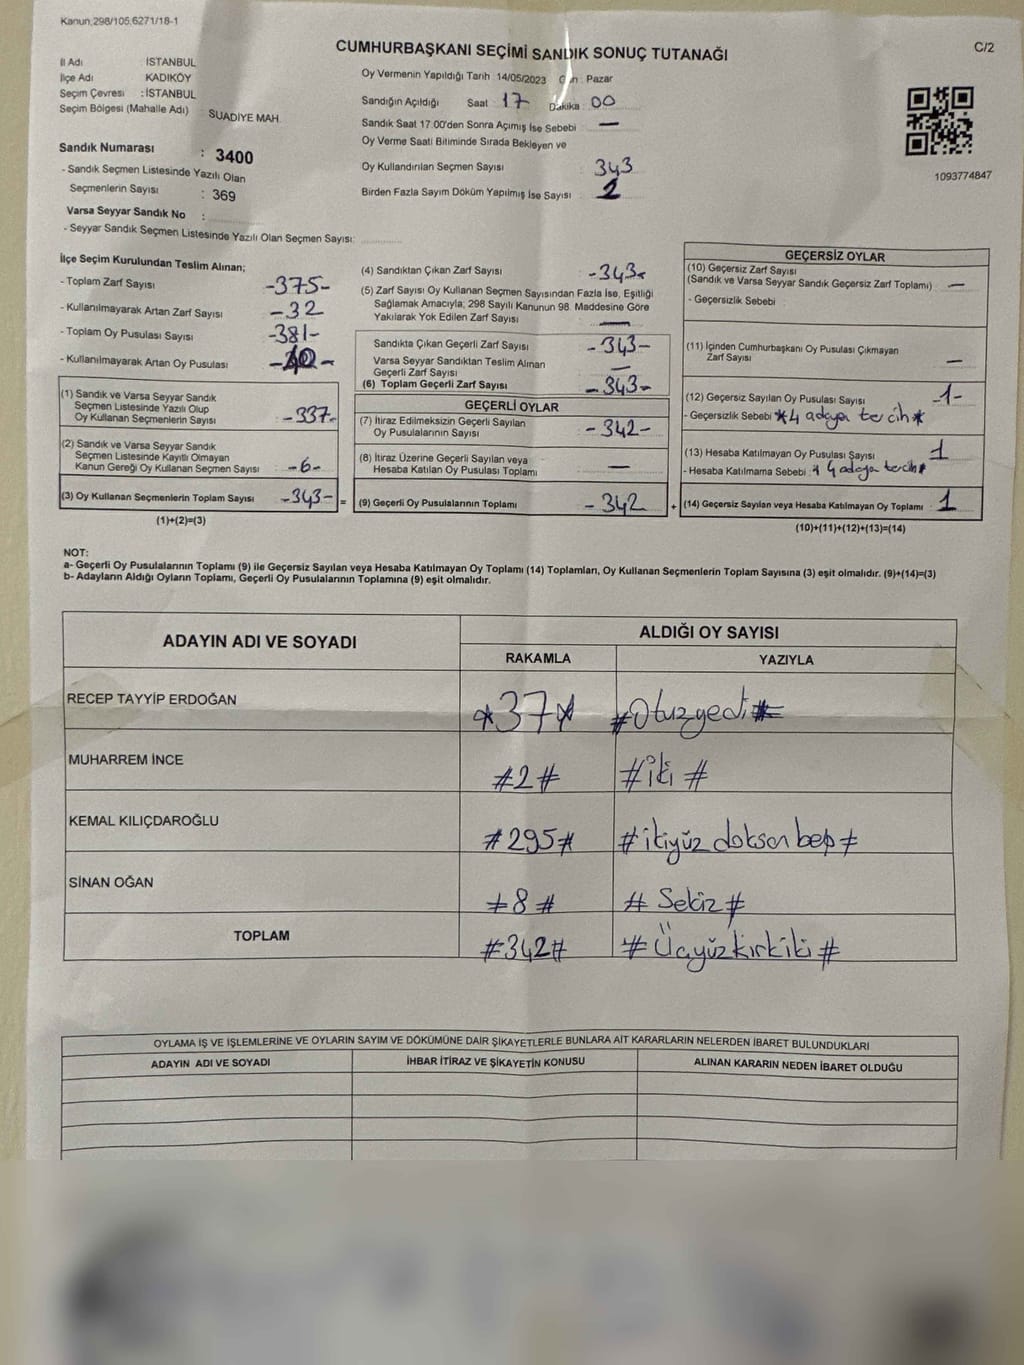 Kanun,298/105,6271/18-1
C/2
CUMHURBAŞKANI SEÇİMİ SANDIK SONUÇ TUTANAĞI
İl Adı İSTANBUL
İlçe Adı KADIKÖY
Seçim Çevresi :İSTANBUL
Seçim Bölgesi (Mahalle Adı) : SUADİYE MAH.
Sandık Numarası : 3400
- Sandık Seçmen Listesinde Yazılı Olan
Seçmenlerin Sayısı : 369
Varsa Seyyar Sandık No :
- Seyyar Sandık Seçmen Listesinde Yazılı Olan Seçmen Sayısı:
Oy Vermenin Yapıldığı Tarih 14/05/2023 Gün : Pazar
Sandığın Açıldığı Saat : 17 Dakika : 00
Sandık Saat 17:00'den Sonra Açımış İse Sebebi : —
Oy Verme Saati Bitiminde Sırada Bekleyen ve
Oy Kullandırılan Seçmen Sayısı : 343
Birden Fazla Sayım Döküm Yapılmış İse Sayısı :
1093774847
İlçe Seçim Kurulundan Teslim Alınan;
- Toplam Zarf Sayısı : -375-
- Kullanılmayarak Artan Zarf Sayısı : -32
- Toplam Oy Pusulası Sayısı : -381-
- Kullanılmayarak Artan Oy Pusulası :
(1) Sandık ve Varsa Seyyar Sandık
Seçmen Listesinde Yazılı Olup
Oy Kullanan Seçmenlerin Sayısı : -337-
(2) Sandık ve Varsa Seyyar Sandık
Seçmen Listesinde Kayıtlı Olmayan
Kanun Gereği Oy Kullanan Seçmen Sayısı : -6-
(3) Oy Kullanan Seçmenlerin Toplam Sayısı : -343- =
(1)+(2)=(3)
(4) Sandıktan Çıkan Zarf Sayısı : -343-
(5) Zarf Sayısı Oy Kullanan Seçmen Sayısından Fazla İse, Eşitliği
Sağlamak Amacıyla; 298 Sayılı Kanunun 98. Maddesine Göre
Yakılarak Yok Edilen Zarf Sayısı : —
Sandıkta Çıkan Geçerli Zarf Sayısı : -343-
Varsa Seyyar Sandıktan Teslim Alınan
Geçerli Zarf Sayısı : —
(6) Toplam Geçerli Zarf Sayısı : -343-
GEÇERLİ OYLAR
(7) İtiraz Edilmeksizin Geçerli Sayılan
Oy Pusulalarının Sayısı : -342-
(8) İtiraz Üzerine Geçerli Sayılan veya
Hesaba Katılan Oy Pusulası Toplamı : —
(9) Geçerli Oy Pusulalarının Toplamı : -342 +
GEÇERSİZ OYLAR
(10) Geçersiz Zarf Sayısı
(Sandık ve Varsa Seyyar Sandık Geçersiz Zarf Toplamı) : —
- Geçersizlik Sebebi :
(11) İçinden Cumhurbaşkanı Oy Pusulası Çıkmayan
Zarf Sayısı : —
(12) Geçersiz Sayılan Oy Pusulası Sayısı : -1-
- Geçersizlik Sebebi : *4 adaya tercih*
(13) Hesaba Katılmayan Oy Pusulası Sayısı : 1
- Hesaba Katılmama Sebebi : * 4 adaya tercih*
(14) Geçersiz Sayılan veya Hesaba Katılmayan Oy Toplamı : 1
(10)+(11)+(12)+(13)=(14)
NOT:
a- Geçerli Oy Pusulalarının Toplamı (9) ile Geçersiz Sayılan veya Hesaba Katılmayan Oy Toplamı (14) Toplamları, Oy Kullanan Seçmenlerin Toplam Sayısına (3) eşit olmalıdır. (9)+(14)=(3)
b- Adayların Aldığı Oyların Toplamı, Geçerli Oy Pusulalarının Toplamına (9) eşit olmalıdır.
ADAYIN ADI VE SOYADI ALDIĞI OY SAYISI
RAKAMLA YAZIYLA
RECEP TAYYİP ERDOĞAN *37* #Otuzyedi#
MUHARREM İNCE #2# #iki #
KEMAL KILIÇDAROĞLU #295# #ikiyüz doksan beş#
SİNAN OĞAN #8# # Sekiz#
TOPLAM #342# # Üçyüzkırkiki #
OYLAMA İŞ VE İŞLEMLERİNE VE OYLARIN SAYIM VE DÖKÜMÜNE DAİR ŞİKAYETLERLE BUNLARA AİT KARARLARIN NELERDEN İBARET BULUNDUKLARI
ADAYIN ADI VE SOYADI İHBAR İTİRAZ VE ŞİKAYETİN KONUSU ALINAN KARARIN NEDEN İBARET OLDUĞU